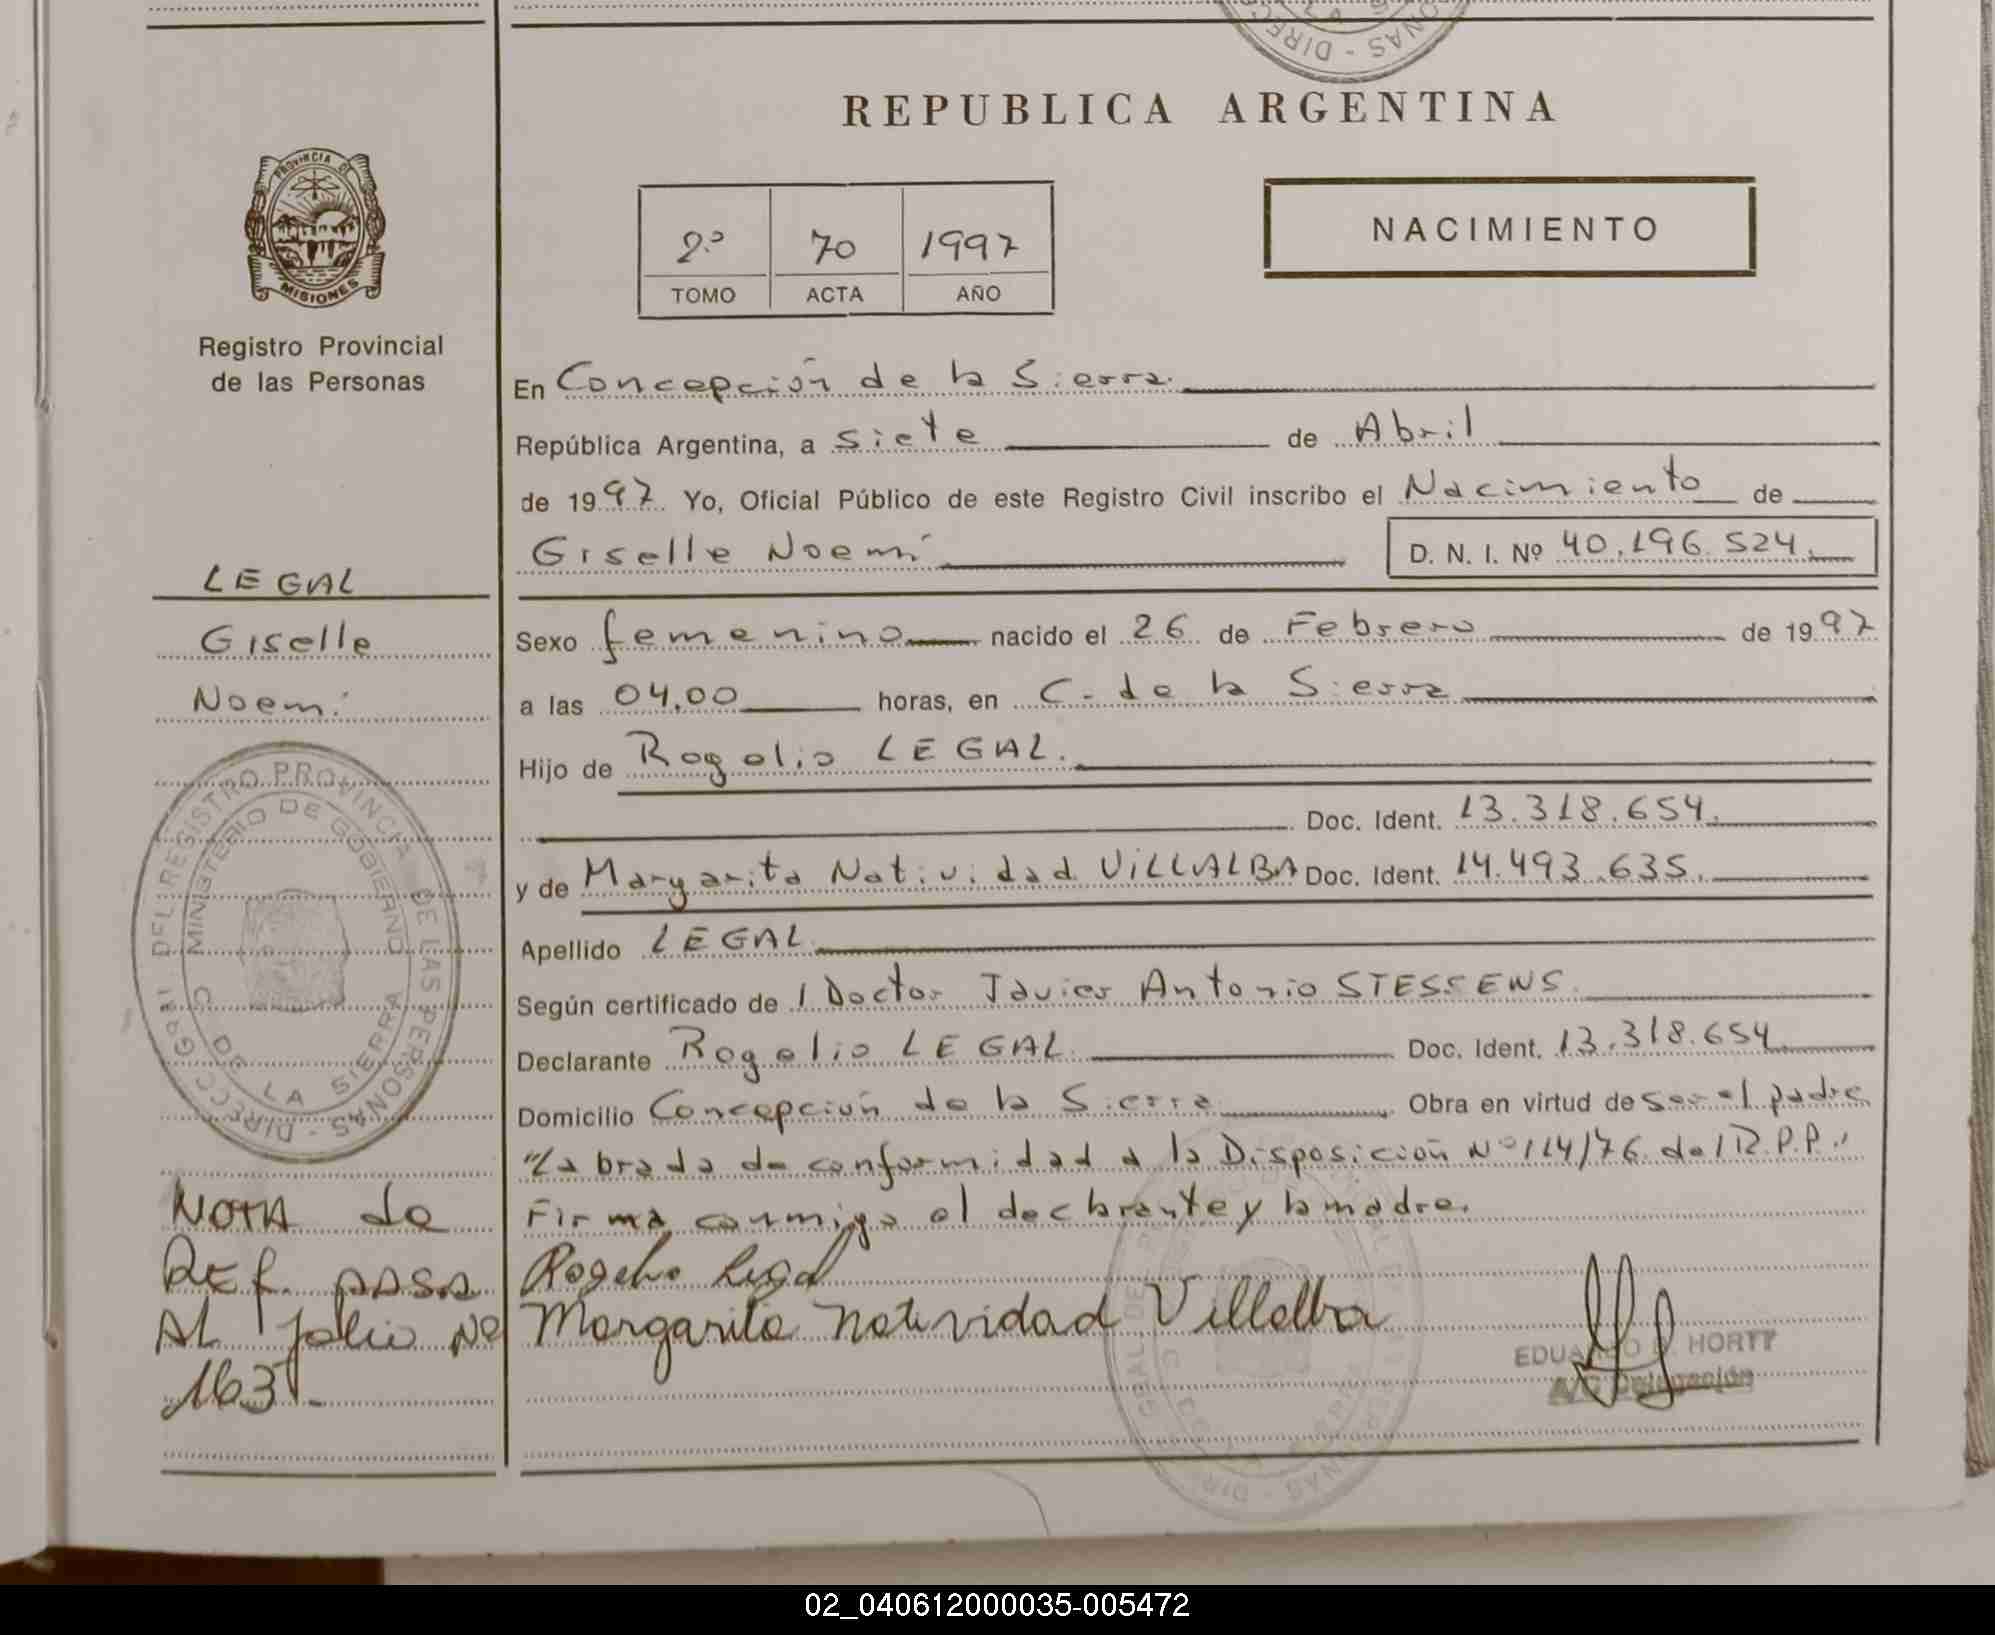 REPUBLICA ARGENTINA
PROVINCIA DE
MISIONES
Registro Provincial
de las Personas
2º 70 1997
TOMO ACTA AÑO
NACIMIENTO
En Concepción de la Sierra.
República Argentina, a siete de Abril
de 1997 Yo, Oficial Público de este Registro Civil inscribo el Nacimiento de
Giselle Noemí D. N. I. Nº 40.196.524.
Sexo femenino nacido el 26 de Febrero de 1997
a las 04,00 horas, en C. de la Sierra
Hijo de Rogelio LEGAL.
Doc. Ident. 13.318.654.
y de Margarita Natividad VILLALBA Doc. Ident. 14.493.635.
Apellido LEGAL
Según certificado de l Doctor Javier Antonio STESSENS.
Declarante Rogelio LEGAL Doc. Ident. 13.318.654
Domicilio Concepción de la Sierra Obra en virtud de ser el padre
"Labrada de conformidad a la Disposición Nº 114/76 del R.P.P."
Firma conmigo el declarante y la madre.
Rogelio Legal
Margarita natividad Villalba
EDUARDO HORTT
A/C Delegación
LEGAL
Giselle
Noemí
DEL REGISTRO PROVINCIAL DE LAS PERSONAS - DIRECC. GRAL
MINISTERIO DE GOBIERNO
C. DE LA SIERRA
NOTA de
REF. PASA
AL folio Nº
163.-
02_040612000035-005472